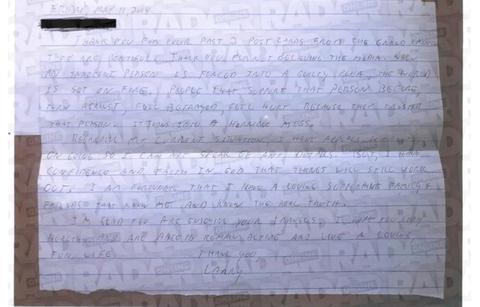 FRIDAY, MAY 11, 2018
THANK YOU FOR YOUR PAST 2 POST CARDS FROM THE GRAND
THEY ARE BEAUTIFUL. THANK YOU FOR NOT BELIEVING THE MEDIA. WHEN
AN INNOCENT PERSON IS FORCED INTO A GUILTY PLEA, THE WORLD
IS SET ON FIRE. PEOPLE THAT SUPPORT THAT PERSON BEFORE,
TURN AGAINST, FEEL BETRAYED, FEEL HURT, BECAUSE THEY TRUSTED
THAT PERSON. IT TURNS INTO A HORRIBLE MESS.
REGARDING MY CURRENT SITUATION, I HAVE APPEALS
GOING SO I CAN NOT SPEAK OF ANY DETAILS. BUT, I HAVE
CONFIDENCE AND FAITH IN GOD THAT THINGS WILL STILL WORK
OUT. I AM FORTUNATE THAT I HAVE A LOVING SUPPORTIVE FAMILY &
FRIENDS THAT KNOW ME AND KNOW THE REAL TRUTH.
I'M GLAD YOU ARE ENJOYING YOUR I HOPE YOU STAY
HEALTHY AND ARE ABLE TO REMAIN ACTIVE AND LIVE A LOVING
FUN LIFE.
THANK YOU
LARRY
RAD ONLINE